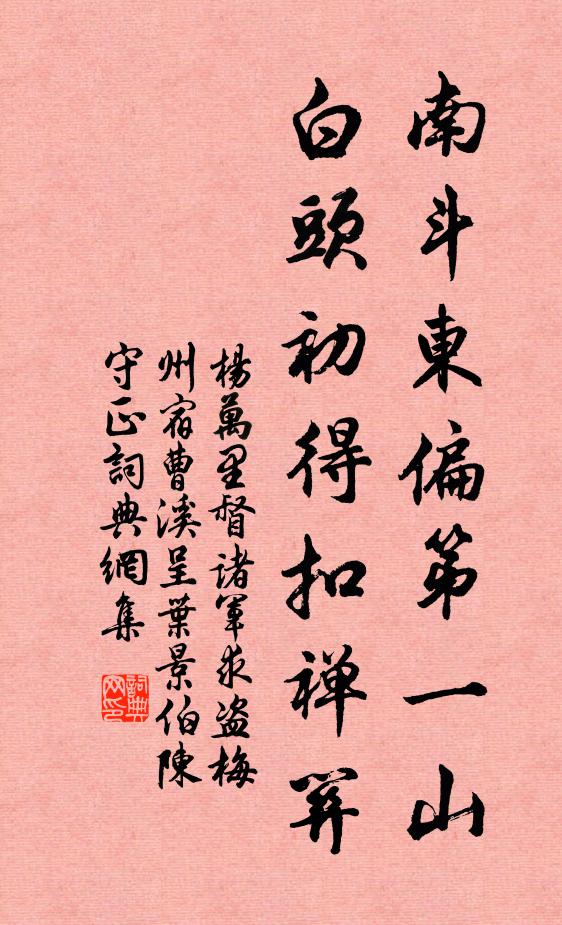 南斗東偏第一山
白頭初得扣禪關
楊萬里督諸軍求盜梅
州宿曹溪呈葉景伯陳
守正詞典網集
詞典网印